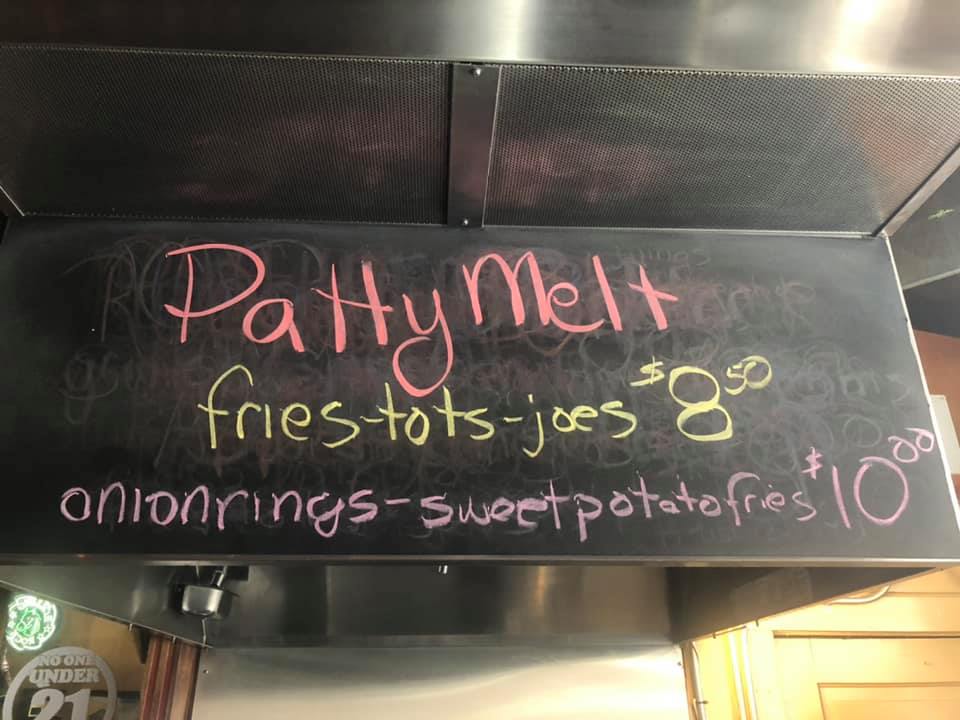 Patty Melt
fries-tots-joes $8.50
onion rings - sweet potato fries $10.00
NO ONE
UNDER
21